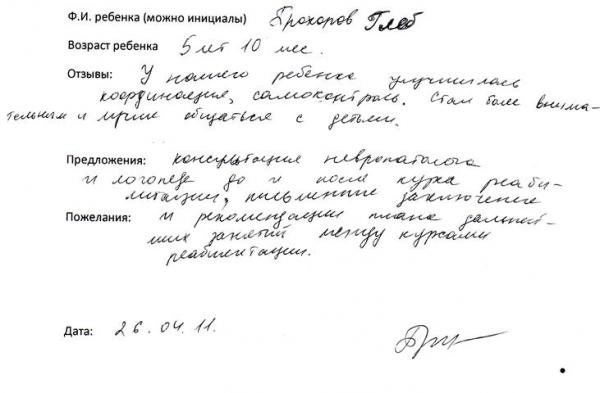 Ф.И. ребенка (можно инициалы) Прохоров Глеб
Возраст ребенка 5 лет 10 мес.
Отзывы: У нашего ребенка улучшилась
координация, самоконтроль. Стал более внима-
тельным и лучше общаться с детьми.
Предложения: консультация невропатолога
и логопеда до и после курса реаби-
литации, письменные заключение
Пожелания: и рекомендации плана дальней-
ших занятий между курсами
реабилитации.
Дата: 26.04.11.